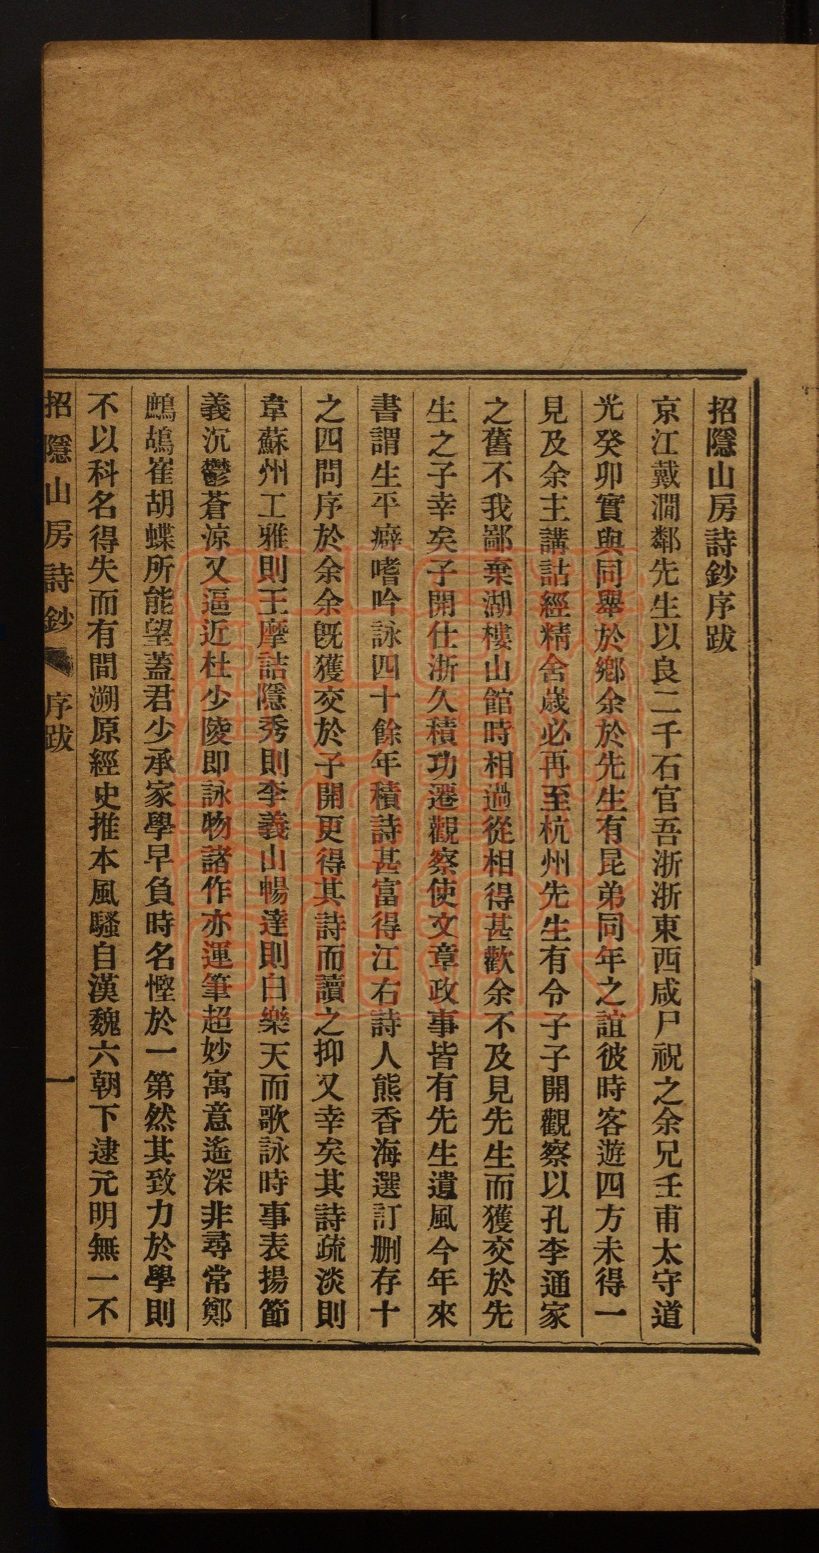 招隱山房詩鈔序跋
京江戴澗鄰先生以良二千石官吾浙浙東西咸尸祝之余兄壬甫太守道
光癸卯實與同舉於鄉余於先生有昆弟同年之誼彼時客遊四方未得一
見及余主講詁經精舍歲必再至杭州先生有令子子開觀察以孔李通家
之舊不我鄙棄湖樓山館時相過從相得甚歡余不及見先生而獲交於先
生之子幸矣子開仕浙久積功遷觀察使文章政事皆有先生遺風今年來
書謂生平癖嗜吟詠四十餘年積詩甚富得江右詩人熊香海選訂刪存十
之四問序於余余旣獲交於子開更得其詩而讀之抑又幸矣其詩疏淡則
韋蘇州工雅則王摩詰隱秀則李義山暢達則白樂天而歌詠時事表揚節
義沉鬱蒼涼又逼近杜少陵即詠物諸作亦運筆超妙寓意遙深非尋常鄭
鷓鴣崔胡蝶所能望蓋君少承家學早負時名慳於一第然其致力於學則
不以科名得失而有間溯原經史推本風騷自漢魏六朝下逮元明無一不
招隱山房詩鈔 序跋 一